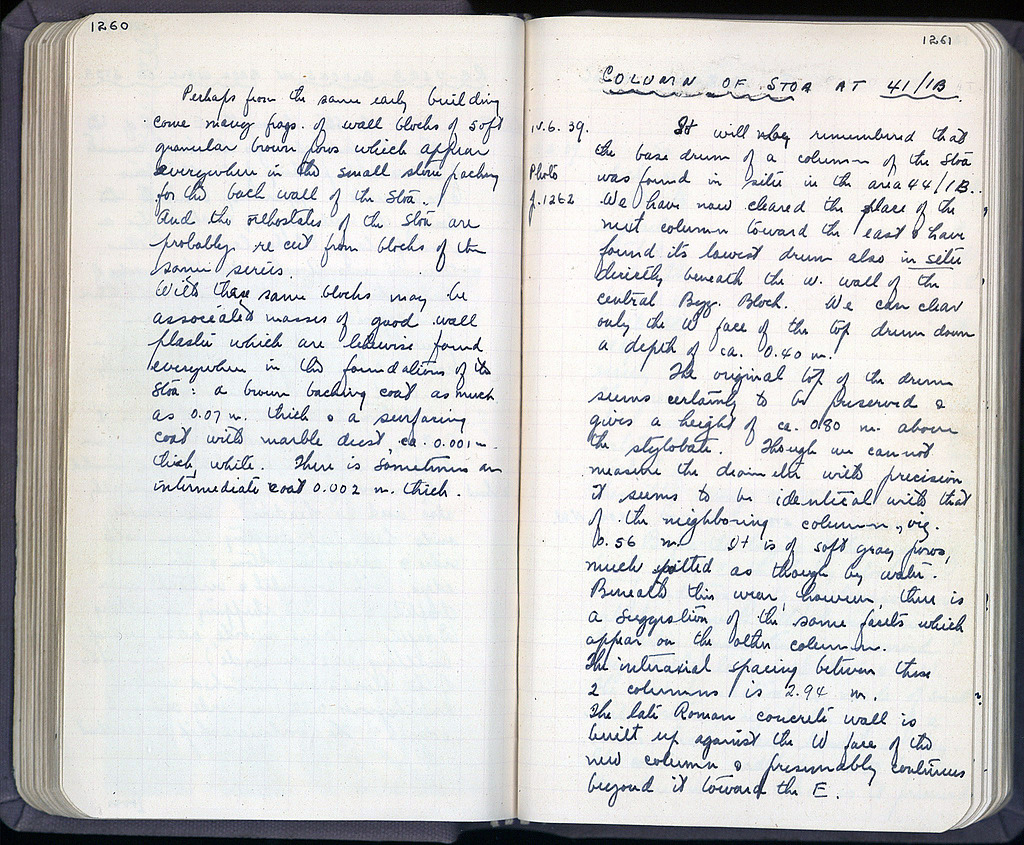 1260
Perhaps from the same early building
come many frags. of wall blocks of soft
granular brown poros which appear
everywhere in the small stone packing
for the back wall of the Stoa.
And the orthostates of the Stoa are
probably re cut from blocks of the
same series.
With these same blocks may be
associated masses of good wall
plaster which are likewise found
everywhere in the foundations of the
Stoa: a brown backing coat as much
as 0.07 m. thick & a surfacing
coat with marble dust ca. 0.001 m.
thick, white. There is sometimes an
intermediate coat 0.002 m. thick.
1261
COLUMN OF STOA AT 41/IB.
15.6.39.
Photo
p.1262
It will be remembered that
the base drum of a column of the Stoa
was found in situ in the area 44/IB.
We have now cleared the place of the
next column toward the east & have
found its lowest drum also in situ
directly beneath the W. wall of the
central Byz. Block. We can clear
only the W face of the top drum down
a depth of ca. 0.40 m.
The original top of the drum
seems certainly to be preserved &
gives a height of ca. 0.80 m. above
the stylobate. Though we cannot
measure the diameter with precision
it seems to be identical with that
of the neighboring column, viz.
0.56 m. It is of soft gray poros,
much pitted as though by water.
Beneath this wear however, there is
a suggestion of the same facets which
appear on the other column.
The interaxial spacing between these
2 columns is 2.94 m.
The late Roman concrete wall is
built up against the W face of the
new column & presumably continues
beyond it toward the E.